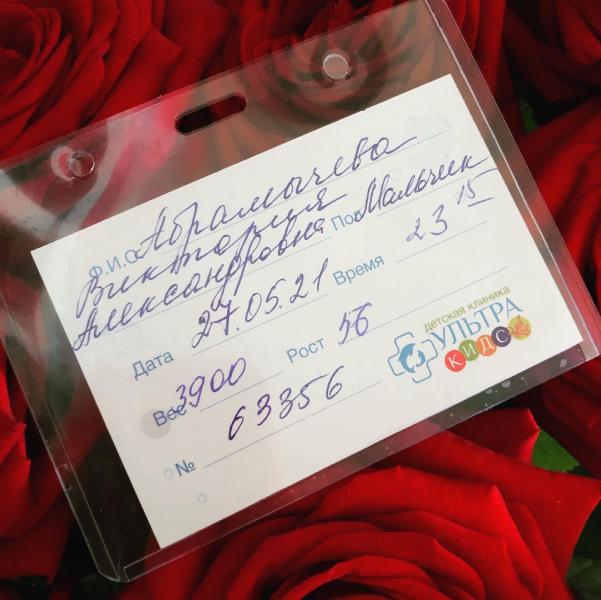 Ф.И.О. Абрамычева
Виктория
Александровна Пол Мальчик
Дата 27.05.21 Время 23 15
Вес 3900 Рост 56
№ 63356
детская клиника
УЛЬТРА
КИДС